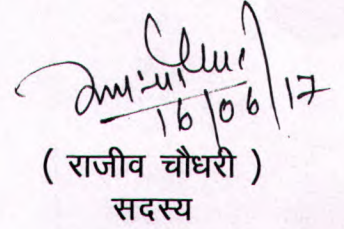 16/06/17
( राजीव चौधरी )
सदस्य